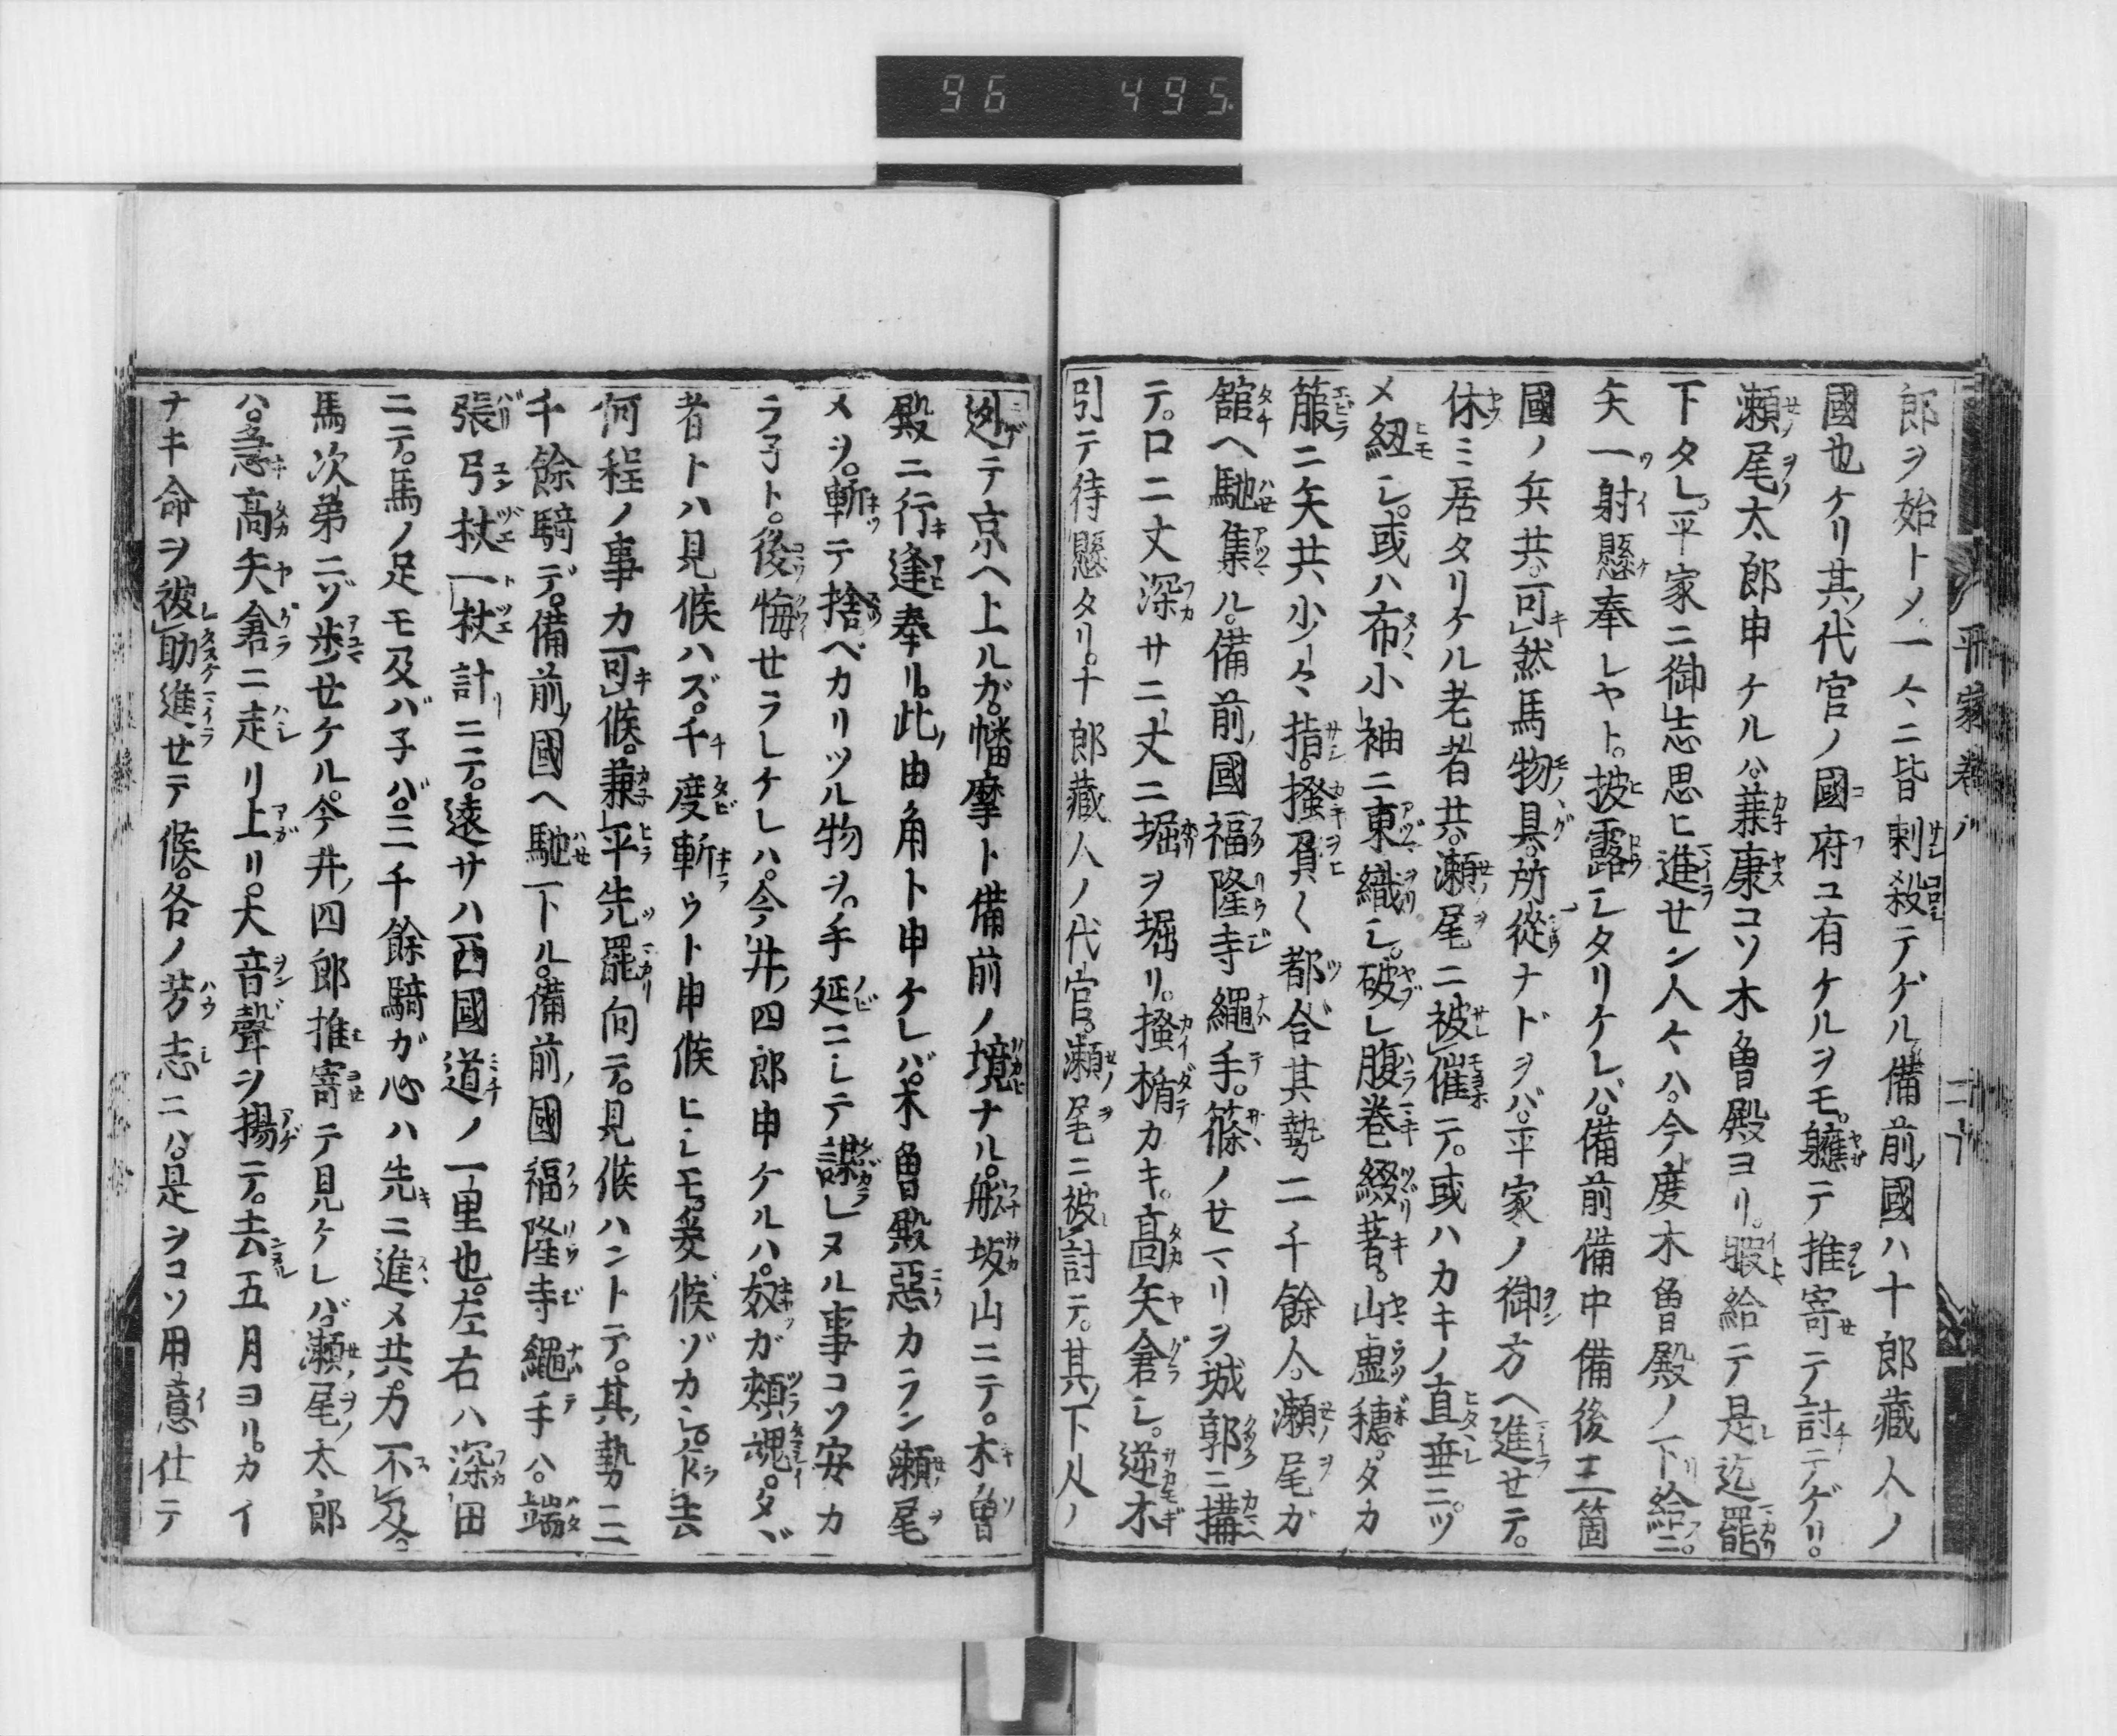 96 495
平家卷八 二十
郎ヲ始トメ一々ニ皆刺殺テゲル備前國ハ十郎藏人ノ
國也ケリ其代官ノ國府ユ有ケルヲモ。軈テ推寄テ討テゲリ。
瀬尾太郎申ケルハ。兼康コソ木曾殿ヨリ。暇給テ是迄罷
下タレ。平家ニ御志思ヒ進セン人々ハ。今度木曾殿ノ下給ニ。
矢一射懸奉レヤト。披露シタリケレバ。備前備中備後三箇
國ノ兵共。可然馬物具。所從ナドヲバ。平家ノ御方ヘ進セテ。
休ミ居タリケル老者共。瀬尾ニ被催テ。或ハカキノ直垂ニ。ツ
メ紐シ。或ハ布小袖ニ東織シ。破レ腹巻綴著。山虚穂。タカ
箙ニ矢共少々指。掻負〱都合其勢二千餘人。瀬尾ガ
舘ヘ馳集ル。備前國福隆寺繩手。篠ノセマリヲ城郭ニ搆
テ。口二丈深サ二丈ニ堀ヲ堀リ。掻楯カキ。高矢倉シ。逆木
引テ待懸タリ。十郎藏人ノ代官。瀬尾ニ被討テ。其下人ノ
迯テ京ヘ上ルガ。幡摩ト備前ノ境ナル。舩坂山ニテ。木曾
殿ニ行逢奉リ。此由角ト申ケレバ。木曾殿惡カラン瀬尾
メヲ。斬テ捨ベカリツル物ヲ。手延ニシテ謀レヌル事コソ安カ
ラ子ト。後悔セラレケレハ。今井四郎申ケルハ。奴ガ頬魂。タヾ
者トハ見候ハズ。千度斬ウト申候ヒシモ。爰候ゾカシ。乍去
何程ノ事カ可候。兼平先罷向テ。見候ハントテ。其勢三
千餘騎デ。備前國ヘ馳下ル。備前國福隆寺繩手ハ。端
張弓杖一杖計ニテ。遠サハ西國道ノ一里也。左右ハ深田
ニテ。馬ノ足モ及バ子バ。三千餘騎ガ心ハ先ニ進メ共。力不及。
馬次第ニゾ歩セケル。今井四郎推寄テ見ケレバ。瀬尾太郎
ハ。急高矢倉ニ走リ上リ。大音聲ヲ揚テ。去五月ヨリ。カイ
ナキ命ヲ被助進セテ候。各ノ芳志ニハ。是ヲコソ用意仕テ